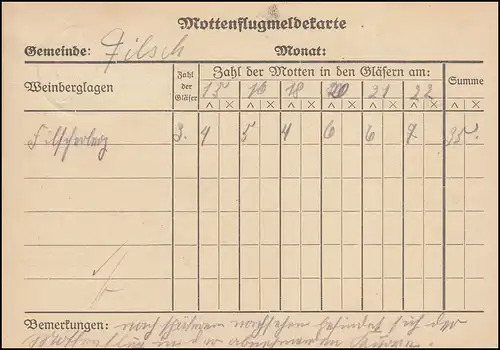 Mottenflugmeldekarte
Gemeinde: Filsch Monat:
Weinberglagen Zahl der Gläser Zahl der Motten in den Gläsern am: Summe
15 16 18 20 21 22
^ × ^ × ^ × ^ × ^ × ^ × ^ ×
Filscherberg 3. 4 5 4 6 6 7
Bemerkungen: nach befindet sich der